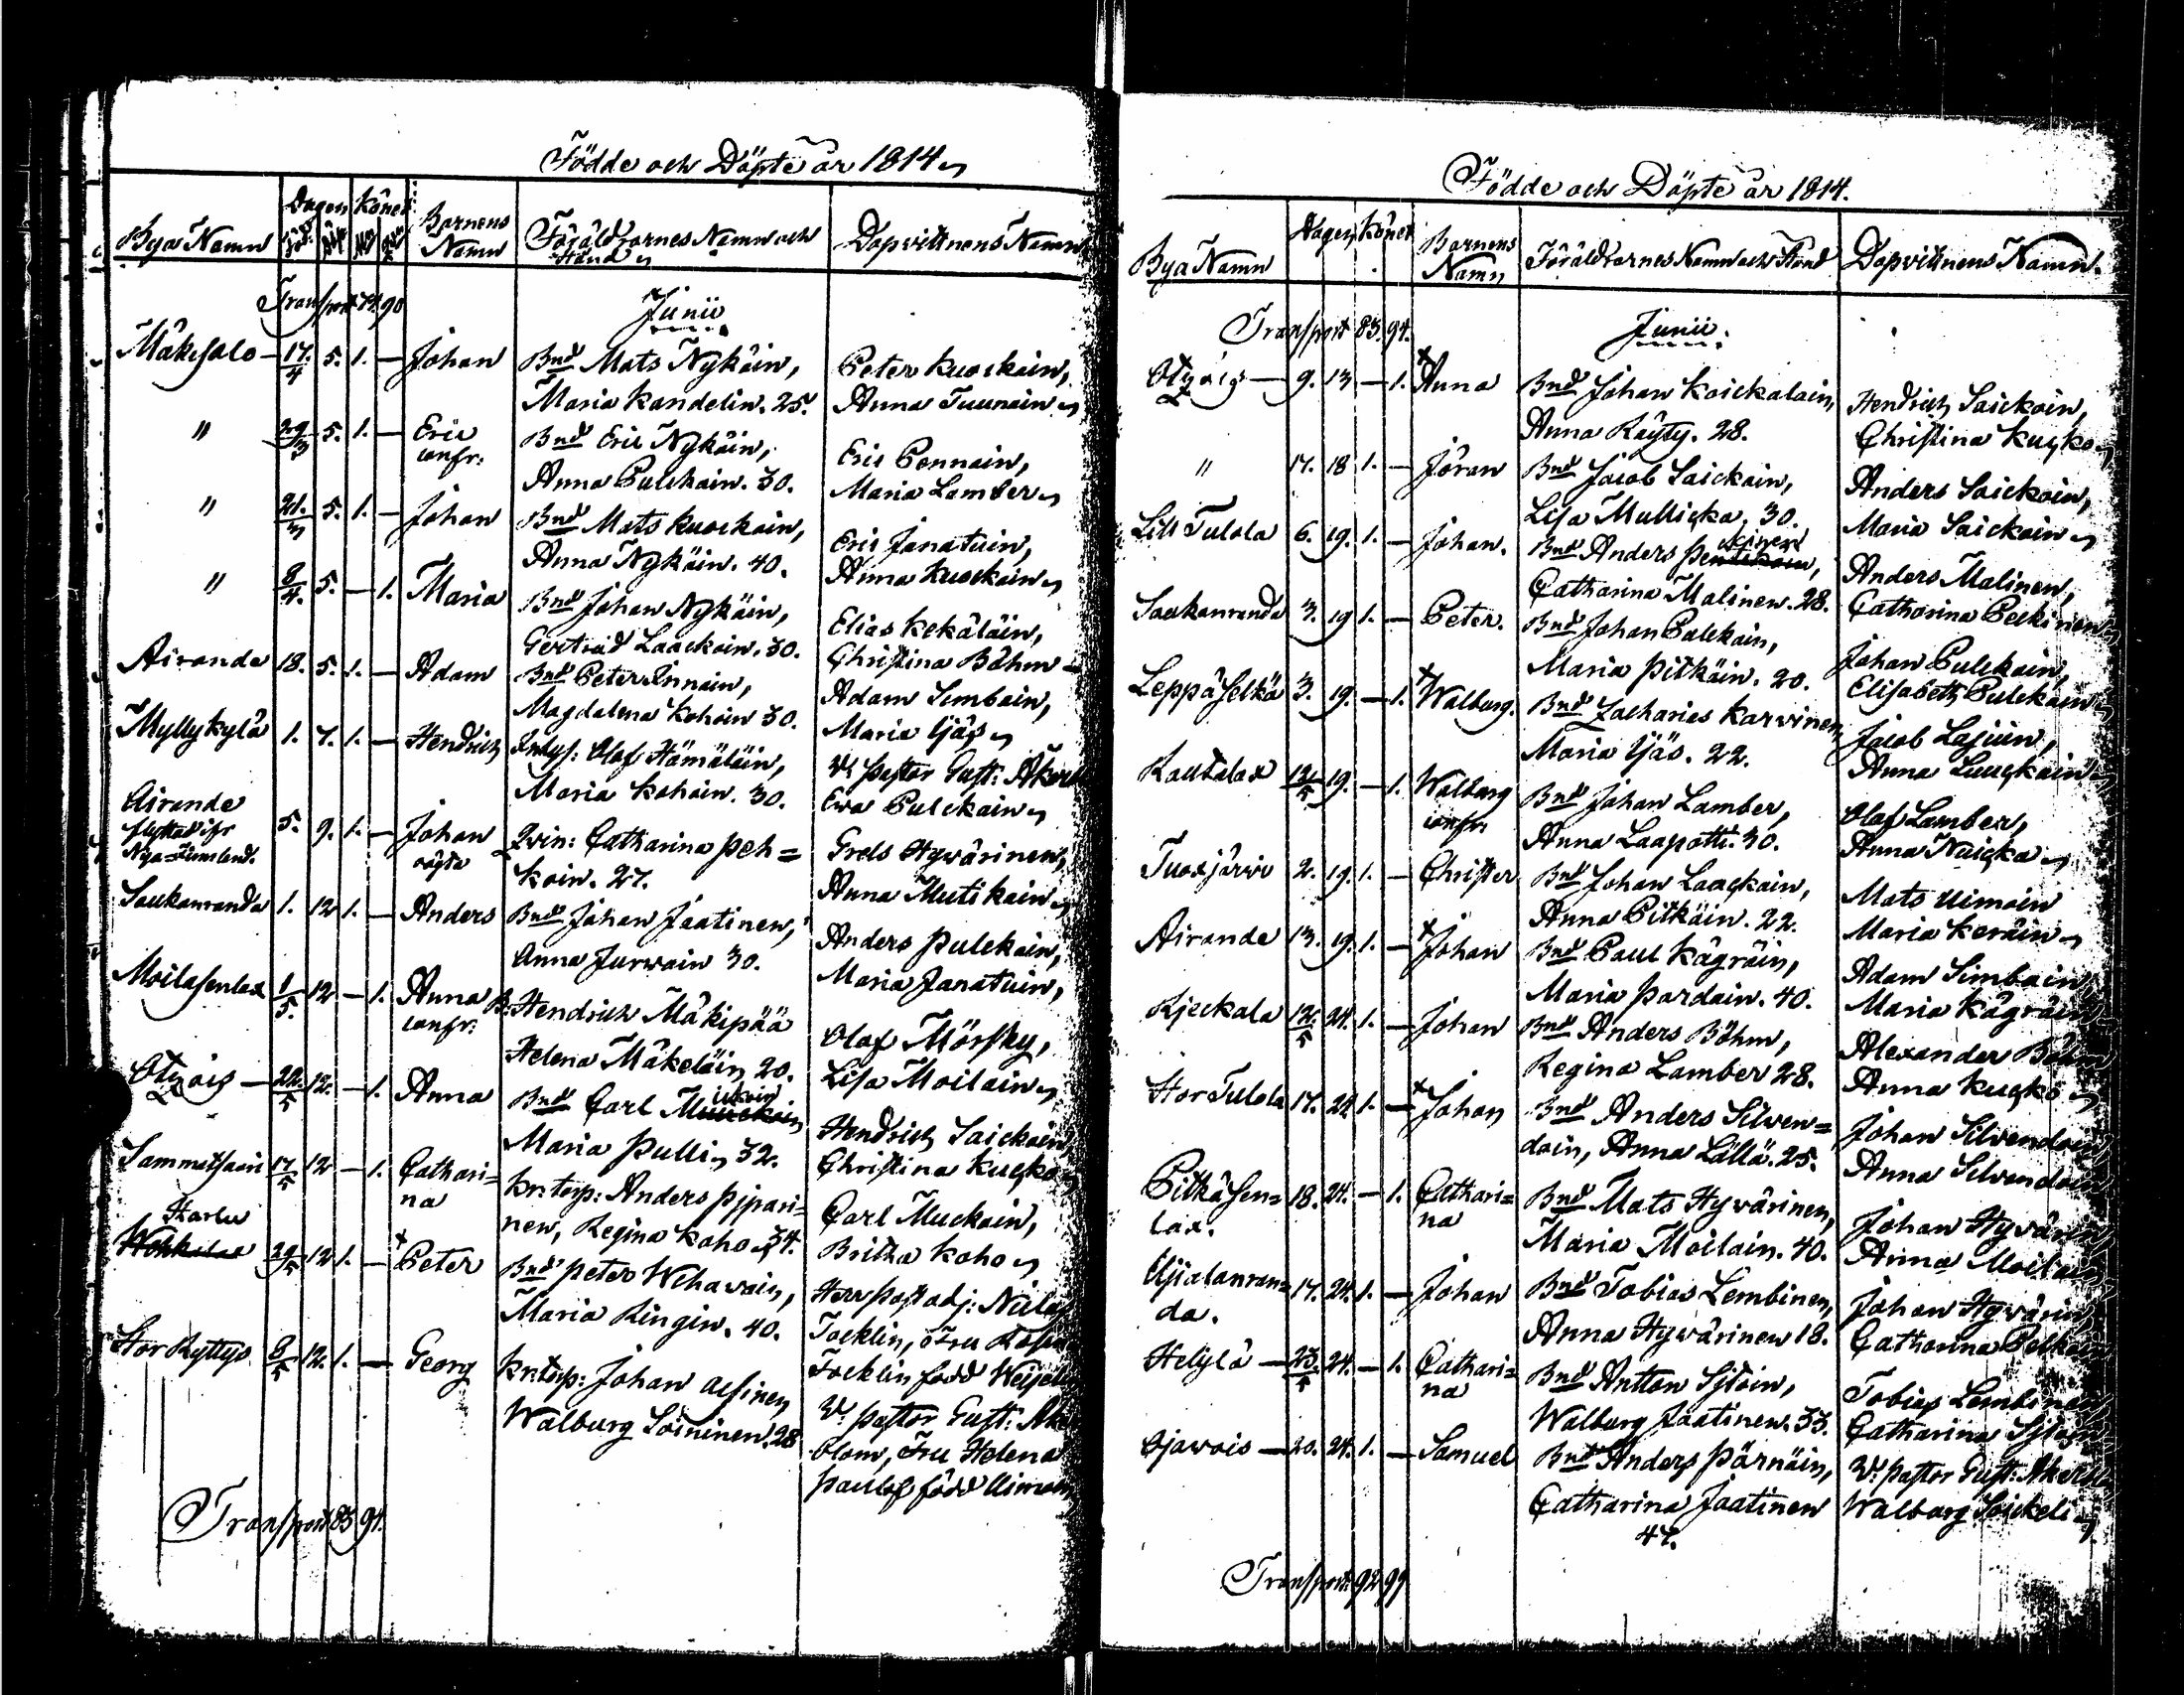 Födde och Döpte år 1814
Bya Namn
Dagen
Könet
Barnens Namn
Föräldrarnes Namn och Stånd
Dopvittnens Namn
Transport 74. 90
Junii
Mäkisalo 17/4 5. 1. — Johan Bnd Mats Nykäin, Peter Kuockain,
Maria Kandelin. 25. Anna Tuunain
" 29/3 5. 1. — Eric Bnd Eric Nykäin, Eric Pennain,
confr: Anna Pulckain. 30. Maria Lamber
" 21./3 5. 1. — Johan Bnd Mats Kuockain, Eric Janatuin,
Anna Nykäin. 40. Anna Kuockain
" 8/4. 5. — 1. Maria Bnd Johan Nykäin, Elias Kekäläin,
Gertrud Laackain. 30. Christina Böhm
Airanda 18. 5. 1. — Adam Bnd Peter Innain, Adam Simbain,
Magdalena Kohain 30. Maria Ijäs
Myllykylä 1. 7. 1. — Hendrich Inhys: Olof Hämäläin, V: Pastor Gust: Åkerb
Maria Kohain. 30. Ewa Pulckain
Airanda 5. 9. 1. — Johan Qvin: Catharina Peh= Grels Hyvärinen,
flyttad ifr
Nya=Sumland. oägta kain. 27. Anna Mutikain
Saukanranda 1. 12 1. — Anders Bnd Johan Jaatinen, Anders Pulckain,
Anna Jurvain 30. Maria Janatuin,
Moilasenlax 1/5. 12 — 1. Anna B: Hendrich Mäkipää Olof Mörsky,
confr: Helena Mäkeläin 20. Lisa Moilain
Otzois — 22./5 12. — 1. Anna Bnd Carl Hendrich Saickain
Maria Pulli 32. Christina Kucko
Sammatsaari 17/5 12 — 1. Cathari= Kr: torp: Anders Pipari= Carl Muckain,
na nen, Regina Koho 34. Britha Koho
Harlu
29/5 12 1. — Peter Bnd Peter Wihavain, Herr Past adj: Nicla
Maria Ringin. 40. Tocklin, Fru
Stor Ryttys 8/5 12. 1. — Georg Kr: torp: Johan Asinen Tocklin född
Walburg Soininen. 28 V: Pastor Gust: Åke
blom, Fru Helena
Paulof född Uiman
Transport 83 94.
Födde och Döpte år 1814.
Bya Namn
Dagen
Könet
Barnens Namn
Föräldrarnes Namn och Stånd
Dopvittnens Namn.
Transport 83. 94.
Junii.
Otzois — 9. 13 — 1. Anna Bnd Johan Kaickalain, Hendrich Saickain,
Anna Räyty. 28. Christina Kucko
" 17. 18 1. — Jöran Bnd Jacob Saickain, Anders Saickain,
Lisa Mullicka. 30. Maria Saickain
Lill Tulola 6. 19. 1. — Johan. Bnd Anders Anders Malinen,
Catharina Malinen. 28. Catharina Peckinen
Saukanranda 3. 19 1. — Peter. Bnd Johan Pulckain, Johan Pulckain,
Maria Pitkäin. 20. Elisabeth Pulckain
Leppäselkä 3. 19. — 1. Walburg. Bnd Zacharias Karvinen, Jacob Lajuin,
Maria Ijäs. 22. Anna Luuckain
Rautalax 12/5 19. — 1. Walburg Bnd Johan Lamber, Olof Lamber,
confr. Anna Laapatti. 30. Anna Naicka
Tuoxjärvi 2. 19. 1. — Christer Bnd Johan Laackain, Mats Uimain
Anna Pitkäin. 22. Maria Keräin
Airanda 13. 19. 1. — Johan Bnd Paul Kägräin, Adam Simbain
Maria Pardain. 40. Maria Kägräin
Rjeckala 12./5 24. 1. — Johan Bnd Anders Böhm, Alexander Böhm
Regina Lamber 28. Anna Kucko
Stor Tulola 17. 24. 1. — Johan Bnd Anders Silven= Johan Silvendain
dain, Anna Lällä. 25. Anna Silvendain
Pitkäsen= 18. 24. — 1. Cathari= Bnd Mats Hyvärinen, Johan Hyvärin
lax. na Maria Moilain. 40. Anna Moilain
Ojialanran= 17. 24. 1. — Johan Bnd Tobias Lembinen, Johan Hyvärin
da. Anna Hyvärinen 18. Catharina
Helylä — 23./5 24. — 1. Cathari= Bnd Anton Sjtoin, Tobias Lembinen
na Walburg Jaatinen. 33. Catharina
Ojavois — 20. 24. 1. — Samuel Bnd Anders Pärnäin, V: Pastor Gust: Åkerb
Catharina Jaatinen Walburg Saickeli
47.
Transport: 92 97